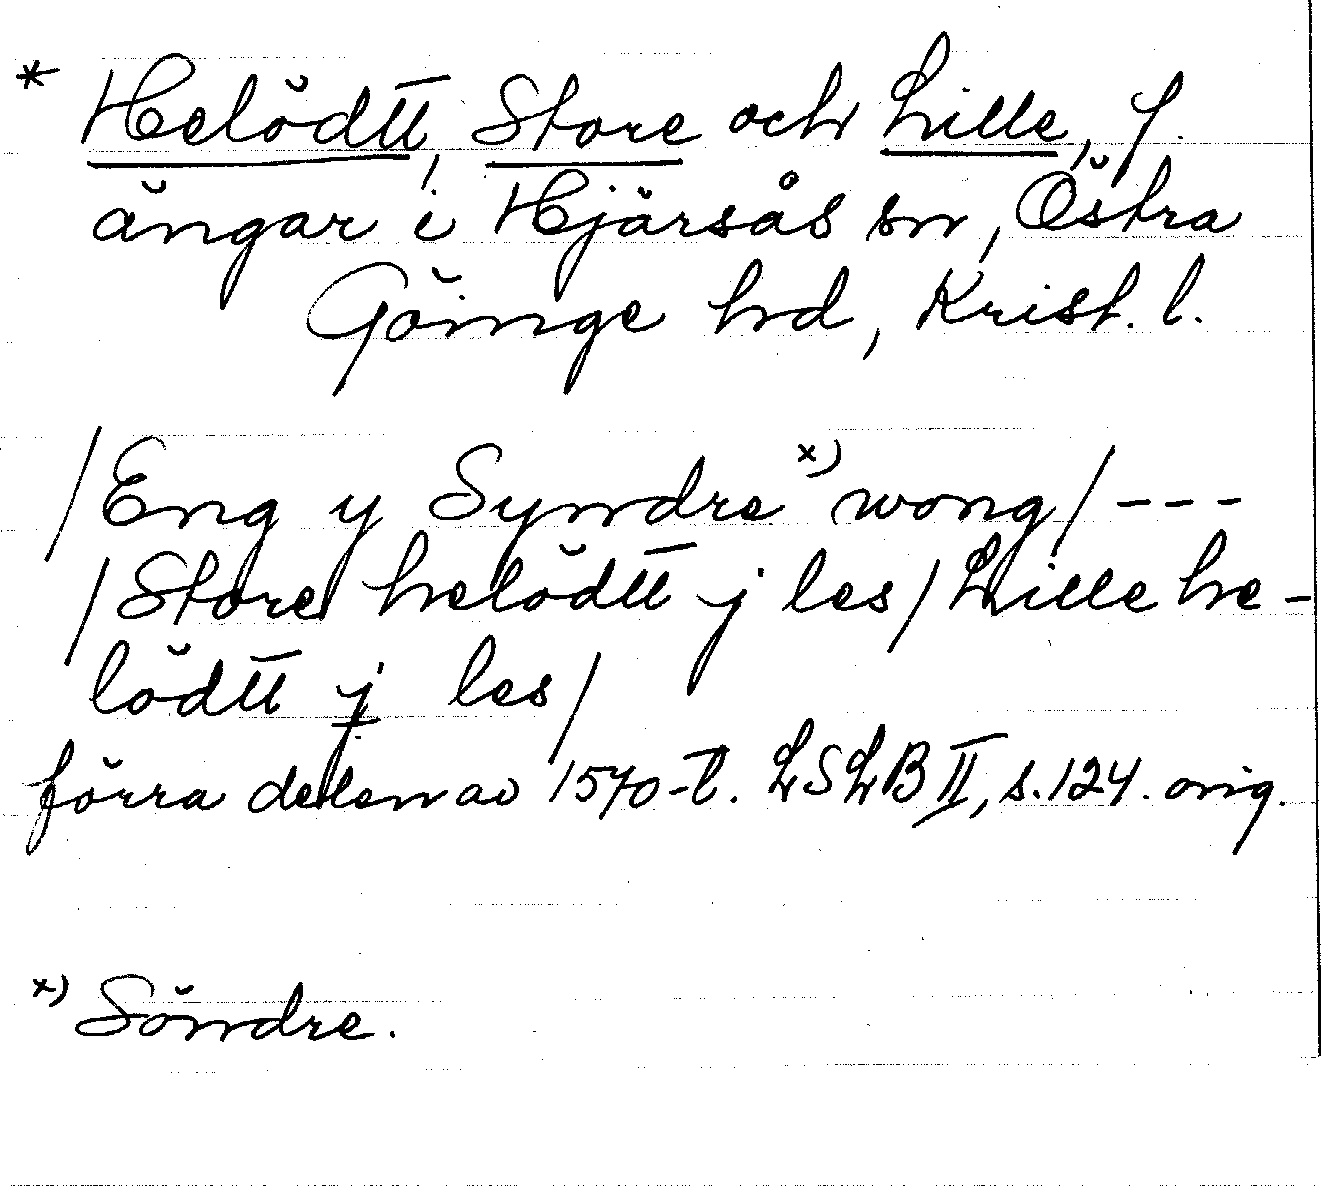 * Helödtt, Store och Lille, f.
ängar i Hjärsås sn, Östra
Göinge hd, Krist. l.
/Eng y Syndre x) wong/ ---
/Store helödtt j les/ Lille he-
lödtt j les/
förra delen av 1570-t. LSLB II, s. 124. orig.
x) Söndre.